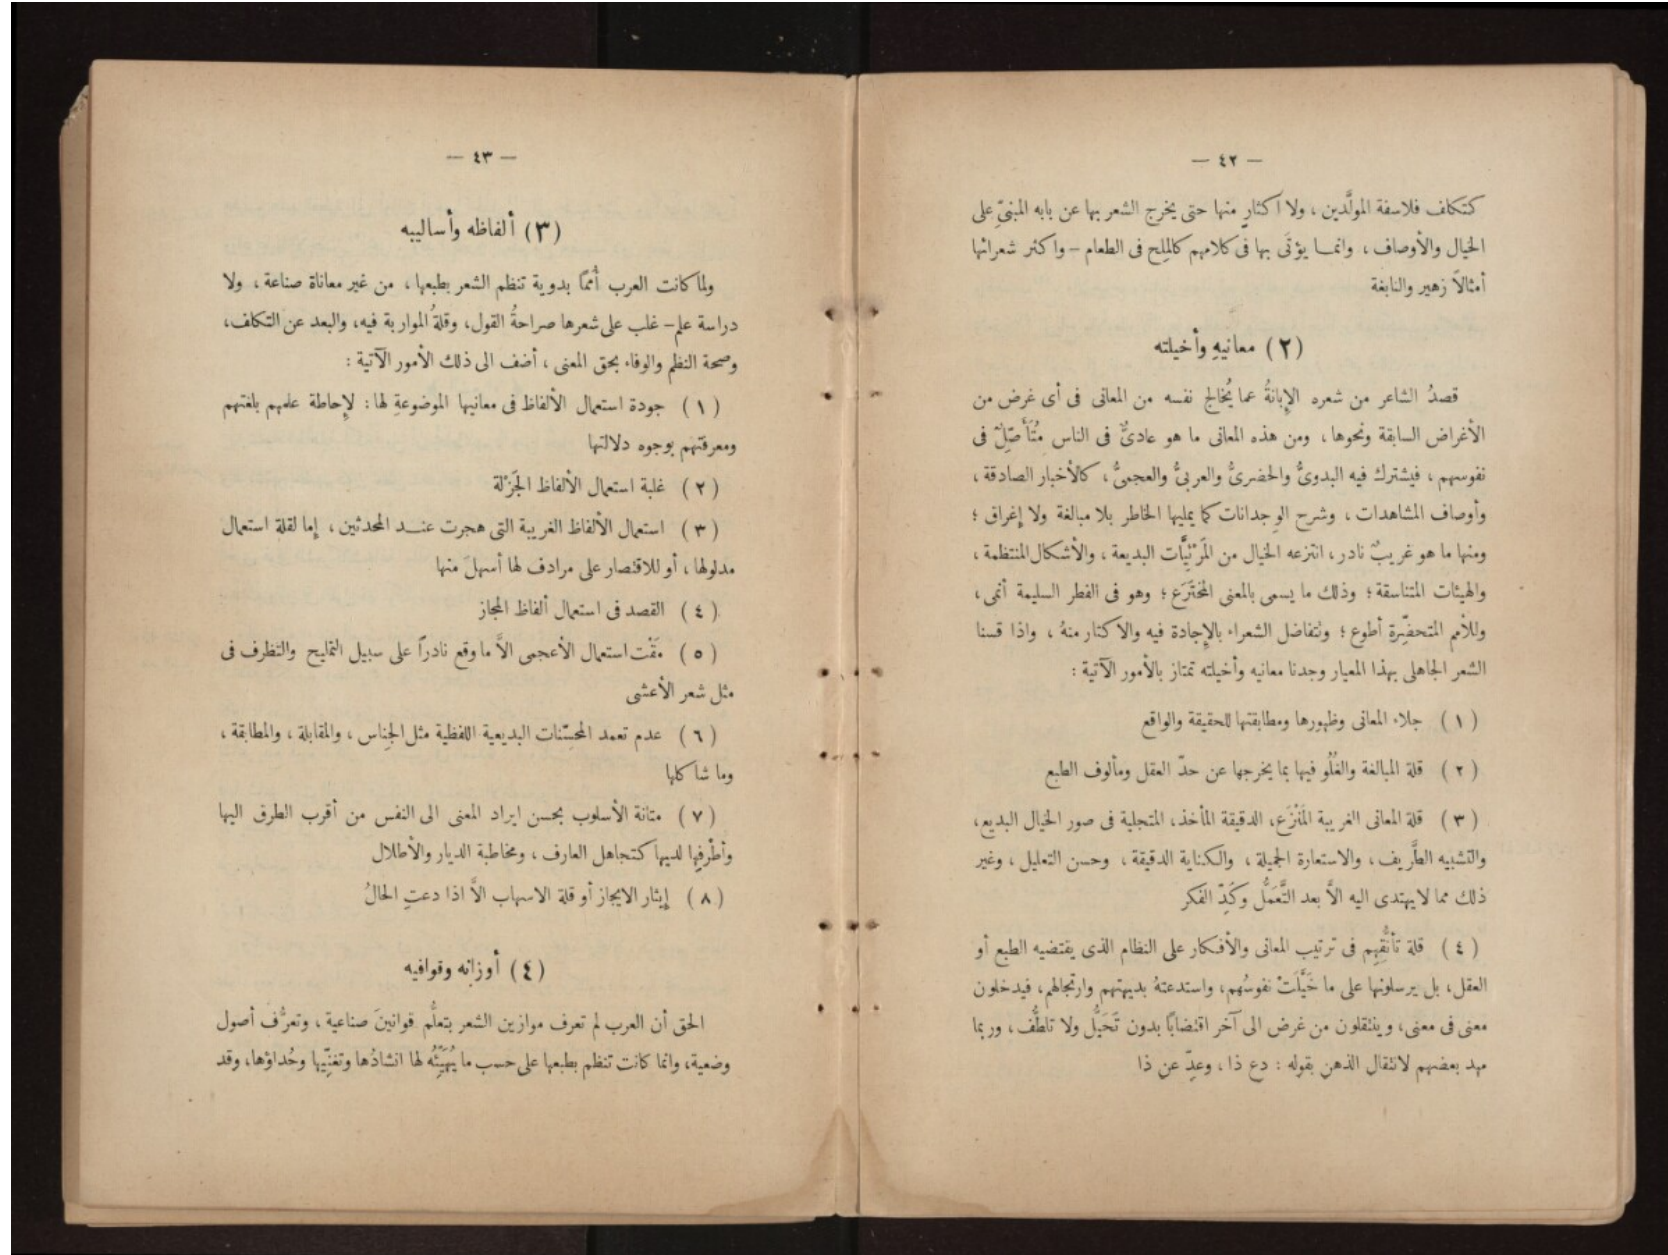 — ٤٢ —
كتكلف فلاسفة المولَّدين ، ولا اكثارٍ منها حتى يخرج الشعر بها عن بابه المبنىّ على
الخيال والأوصاف ، وانمـا يؤتَى بها فى كلامهم كالمِلح فى الطعام – واكثر شعرائها
أمثالاً زهير والنابغة
(٢) معانيهِ وأخيلته
قصدُ الشاعر من شعره الإِبانةُ عما يُخالج نفسه من المعانى فى أى غرض من
الأغراض السابقة ونحوها ، ومن هذه المعانى ما هو عادىٌّ فى الناس مُتَأَصّلٌ فى
نفوسهم ، فيشترك فيه البدوىُّ والحضرىُّ والعربىُّ والعجمىُّ ، كالأخبار الصادقة ،
وأوصاف المشاهدات ، وشرح الوِجدانات كما يمليها الخاطر بلا مبالغة ولا إغراق ؛
ومنها ما هو غريبٌ نادر ، انتزعه الخيال من المَرْئيَّات البديعة ، والأشكال المنتظمة ،
والهيئات المتناسقة ؛ وذلك ما يسمى بالمعنى المُختَرَع ؛ وهو فى الفطر السليمة أنمى ،
وللأمم المتحضِّرة أطوع ؛ وتتفاضل الشعراء بالإِجادة فيه والاكثار منهُ ، واذا قسنا
الشعر الجاهلى بهذا المعيار وجدنا معانيه وأخيلته تمتاز بالأمور الآتية :
(١) جلاء المعانى وظهورها ومطابقتها للحقيقة والواقع
(٢) قلة المبالغة والغُلُو فيها بما يخرجها عن حدّ العقل ومألوف الطبع
(٣) قلة المعانى الغريبة المَنْزَع، الدقيقة المأخذ، المتجلية فى صور الخيال البديع،
والتشبيه الطَّريف ، والاستعارة الجميلة ، والكناية الدقيقة ، وحسن التعليل ، وغير
ذلك مما لا يهتدى اليه الاَّ بعد التَّعَمُّل وكَدِّ الفكر
(٤) قلة تأنُّقِهِم فى ترتيب المعانى والأفكار على النظام الذى يقتضيه الطبع أو
العقل، بل يرسلونها على ما خَيَّلَتْ نفوسُهم، واستدعتهُ بديهتهم وارتجالهم، فيدخلون
معنى فى معنى، وينتقلون من غرض الى آخر اقتضابًا بدون تَحَيُّل ولا تلطُّف ، وربما
مهد بعضهم لانتقال الذهن بقوله : دع ذا ، وعدِّ عن ذا
— ٤٣ —
(٣) ألفاظه وأساليبه
ولما كانت العرب أُممًا بدوية تنظم الشعر بطبعها ، من غير معاناة صناعة ، ولا
دراسة علم – غلب على شعرها صراحةُ القول، وقلةُ المواربة فيه، والبعد عن التكلف،
وصحة النظم والوفاء بحق المعنى ، أضف الى ذلك الأمور الآتية :
(١) جودة استعمال الألفاظ فى معانيها الموضوعةِ لها : لإِحاطة علمهم بلغتهم
ومعرفتهم بوجوه دلالتها
(٢) غلبة استعمال الألفاظ الجَزْلة
(٣) استعمال الألفاظ الغريبة التى هجرت عنـد المحدثين ، إما لقلة استعمال
مدلولها ، أو للاقتصار على مرادف لها أسهلَ منها
(٤) القصد فى استعمال ألفاظ المجاز
(٥) مَقْت استعمال الأعجمى الاَّ ما وقع نادراً على سبيل التمليح والتظرف فى
مثل شعر الأعشى
(٦) عدم تعمد المحسِّنات البديعية اللفظية مثل الجِناس ، والمقابلة ، والمطابقة ،
وما شاكلها
(٧) متانة الأسلوب بحسن ايراد المعنى الى النفس من أقرب الطرق اليها
وأطْرفِها لديها كتجاهل العارف ، ومخاطبة الديار والأطلال
(٨) إيثار الايجاز أو قلة الاسهاب الاَّ اذا دعتِ الحالُ
(٤) أوزانه وقوافيه
الحق أن العرب لم تعرف موازين الشعر بتعلُّم قوانينَ صناعية ، وتعرُّف أصول
وضعية، وانما كانت تنظم بطبعها على حسب ما يُهَيِّئُه لها انشادُها وتغنِّيها وحُداؤها، وقد